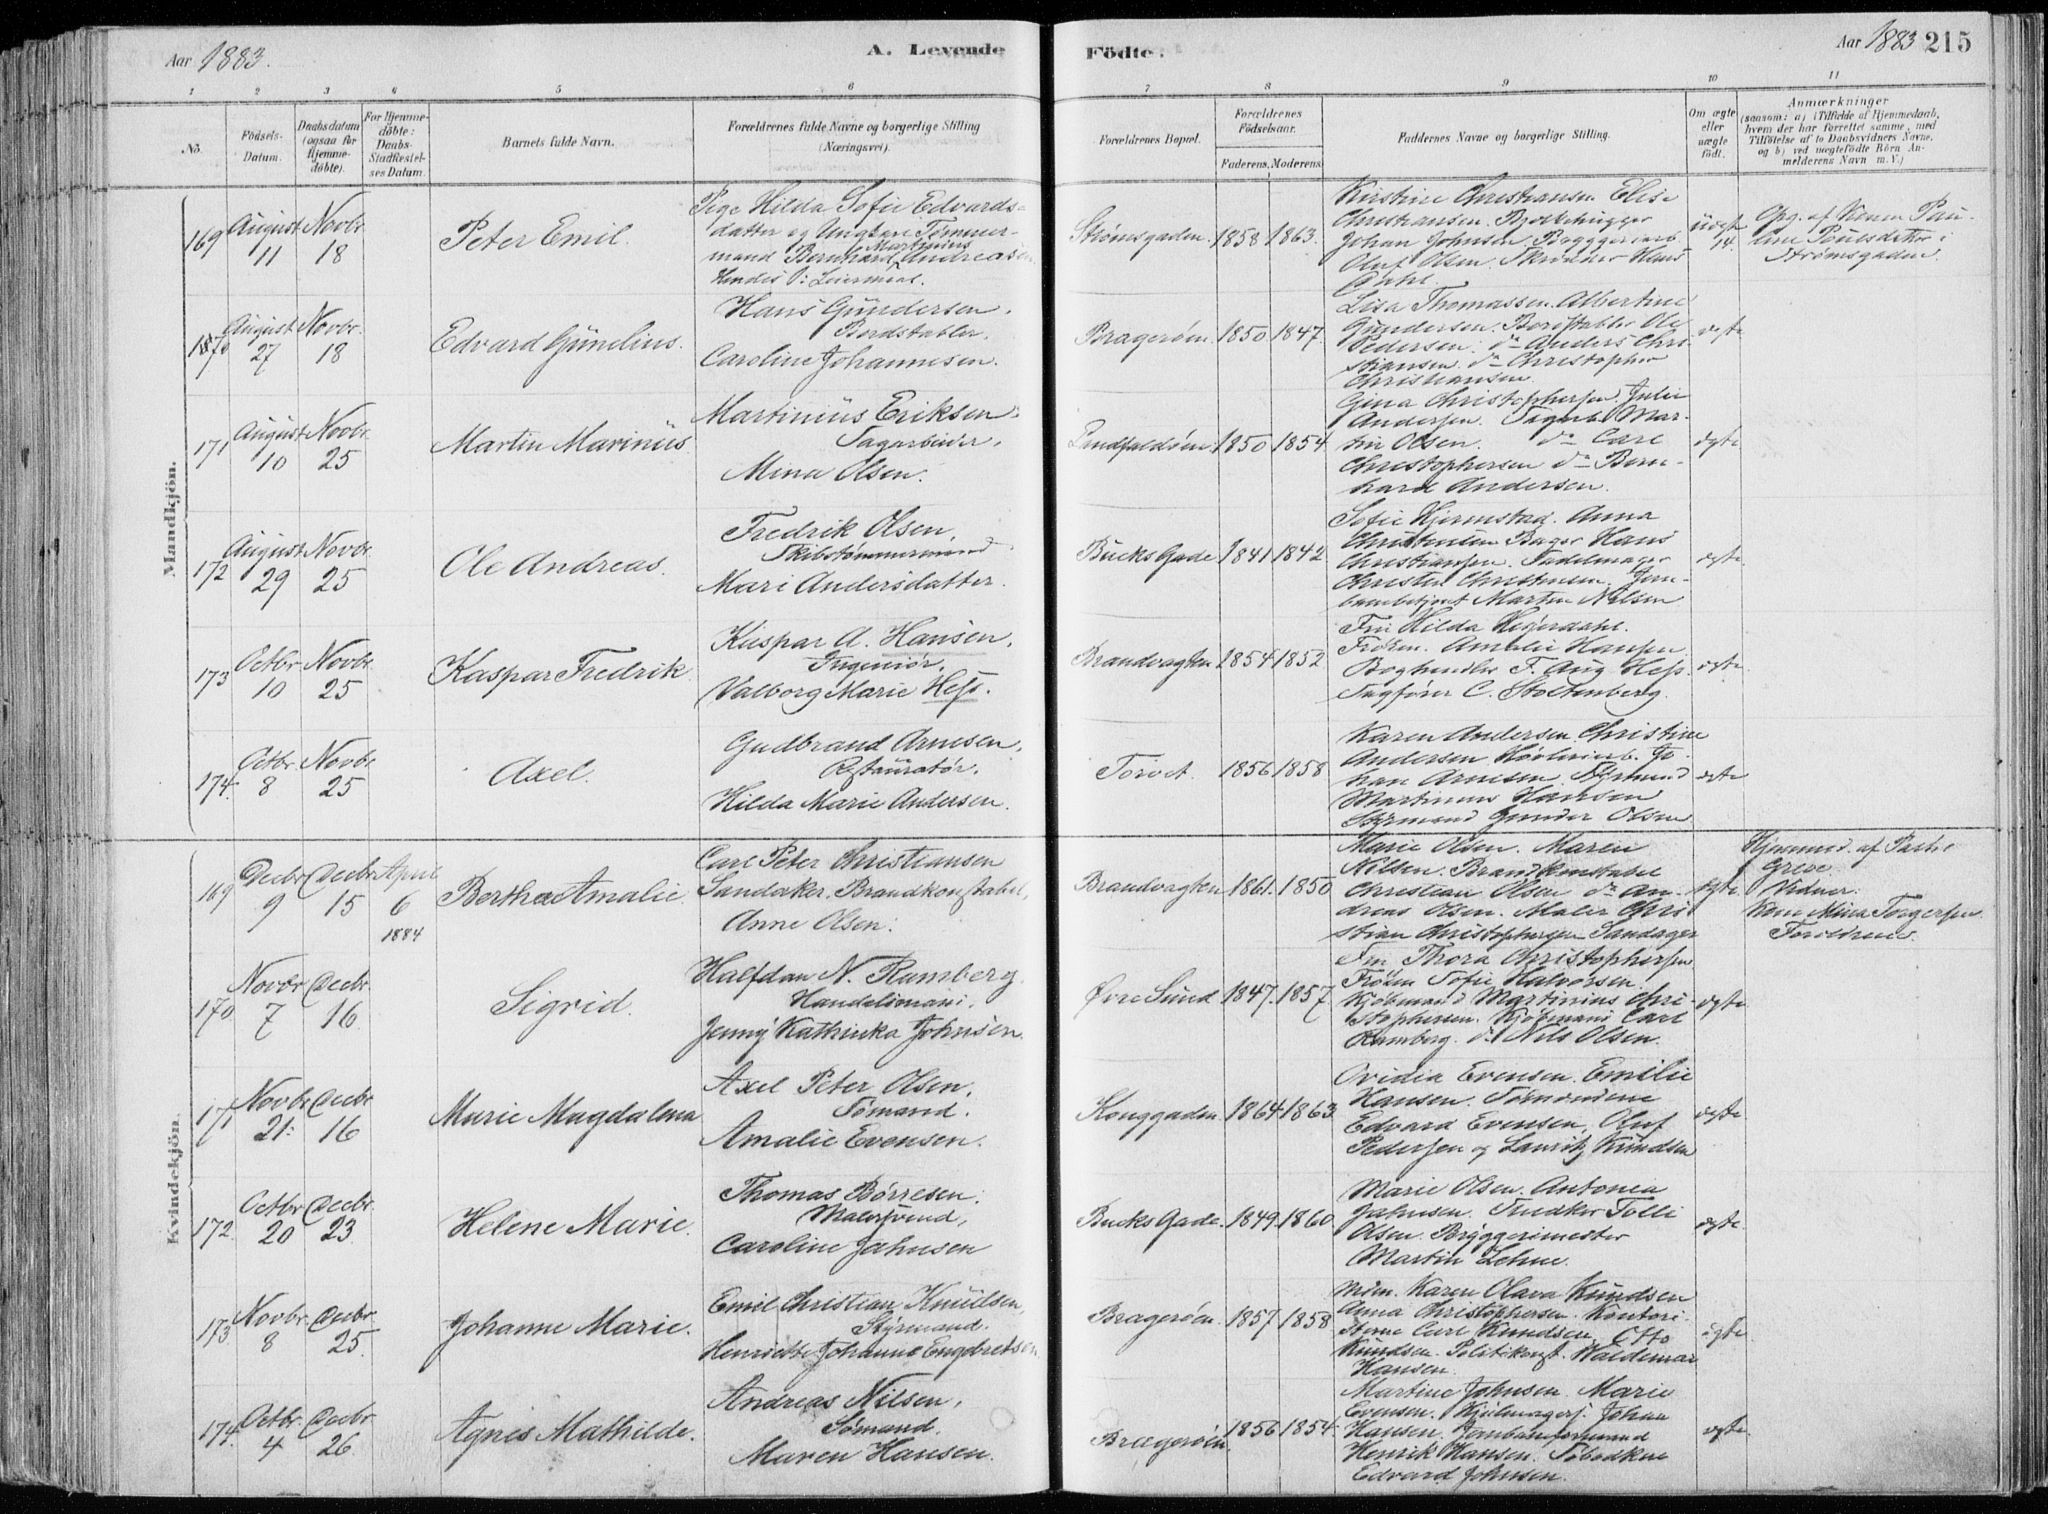 Aar 1883.
A. Levende
Födte.
Aar 1883 215
1 2 3 4 5 6 7 8 9 10 11
No.
Födsels-Datum.
Daabsdatum (ogsaa for Hjemmedøbte).
For Hjemmedøbte: Daabs-Stadfæstelses Datum.
Barnets fulde Navn.
Forældrenes fulde Navne og borgerlige Stilling
(Næringsvei).
Forældrenes Bopæl.
Forældrenes Födselsaar.
Faderens. Moderens.
Faddernes Navne og borgerlige Stilling.
Om ægte eller uægte födt.
Anmærkninger
(saasom: a) i Tilfælde af Hjemmedaab,
hvem der har forrettet samme, med
Tilföielse af to Daabsvidners Navne,
og b) ved uægtefödte Börn Anmelderens Navn m. V.)
Mandkjön.
169 August 11 Novbr 18
Peter Emil.
Pige Hilda Sofie Edvards-
datter og Ungkar Tømmer-
mand Bernhard Martinius Andreasen
Hendes 1: Leiermaal.
Strømsgaden. 1858 1863.
Kirstine Christiansen Elise
Christiansen.
Johan Johnsen
Oluf Olsen. Skrædder Hans
uægte
14.
Opg. af Konen Pau-
line Poulsdatter i
Strømsgaden.
170 August 27 Novbr. 18
Edvard Gunelius.
Hans Gundersen.
Bordstabler.
Caroline Johannesen.
Bragerøen. 1850 1847.
Lisa Thomassen. Albertine
Gundersen. Bordstabler Ole
Pedersen. do Anders Chri-
stiansen. do Christopher
Christiansen.
ægte
171 August 10 Novbr. 25
Martin Marinius.
Martinius Eriksen.
Sagarbeider.
Mina Olsen.
Landfaldøen 1850 1854.
Gina Christophersen. Julie
Andersen. Sagarb. Mar-
tin Olsen. do Carl
Christophersen do Bern-
hard Andersen.
ægte
172 August 29 Novbr. 25
Ole Andreas.
Fredrik Olsen,
Skibstømmermand
Mari Andersdatter.
Bucks Gade 1841 1842
Sofie Hjermstad. Anna
Christensen Bager Hans
Christiansen. Sadelmager
Christen Christensen. Jern-
banebetjent Marten Nilsen
ægte
173 Octbr 10 Novbr. 25
Kaspar Fredrik.
Kaspar A. Hansen.
Ingeniør.
Valborg Marie Hess.
Brandvagten 1854 1852
Fru Hilda
Frøken. Amalie Hansen
Boghandler F. Aug Hess.
Sagfører C. Stoltenberg.
ægte
174. Octbr. 8 Novbr 25
Axel.
Gudbrand Arnesen.
Restauratør.
Hilda Marie Andersen.
Torvet. 1856 1858
Karen Andersen Christine
Andersen Høvleriarb. Jo-
han Arnesen Styrmand
Martinius Hansen
Styrmand Gunder Olsen
ægte
Kvindekjön.
169 Decbr 9 Decbr 15 April 6 1884
Berthe Amalie.
Carl Peter Christiansen
Sandaker. Brandkonstabel,
Anne Olsen.
Brandvagten 1861. 1850
Marie Olsen. Maren
Nilsen. Brandkonstabel
Christian Olsen do An-
dreas Olsen. Maler Chri
stian Christophersen Sandager
ægte
Hjemmed. af Pastor
Greve
Vidner:
Kone Mina Torgersen
Forældrene.
170 Novbr 7 Decbr. 16
Sigrid.
Halfdan N. Ramberg.
Handelsmand.
Jenny Kathinka Johnsen.
Øvre Sund. 1847. 1857.
Fru Thora Christophersen
Frøken Sofie Halvorsen.
Kjøbmand Martinius Chri-
stophersen. Kjøbmand Carl
Ramberg. do Nils Olsen.
ægte
171 Novbr 21. Decbr 16
Marie Magdalena
Axel Peter Olsen.
Sømand.
Amalie Evensen.
Konggaden. 1864 1863
Ovidia Evensen. Emilie
Hansen. Sømændene
Edvard Evensen, Oluf
Pedersen og Lauritz Knudsen
ægte
172. Octbr 20 Decbr. 23
Helene Marie.
Thomas Børresen.
Malersvend,
Caroline Jahnsen
Bucks Gade. 1849. 1860
Marie Olsen. Antonea
Jahnsen. Snedker Tolle
Olsen. Bryggerimester
Martin Lehne.
ægte
173 Novbr. 8 Decbr. 25.
Johanne Marie.
Emil Christian Knudsen,
Styrmand.
Henriette Johanne Engebretsen.
Bragerøen. 1857 1858
Mdm. Karen Olava Knudsen
Anna Christophersen. Kontori-
sterne Carl Knudsen, Otto
Knudsen. Politikonst. Waldemar
Hansen.
ægte
174. Octbr. 4 Decbr. 26.
Agnes Mathilde.
Andreas Nilsen,
Sømand.
Maren Hansen.
Bragerøen. 1856 1854.
Martine Johnsen. Marie
Evensen. Hjulmagers. Johan
Hansen. Jernbaneformand
Henrik Hansen.
Edvard Johnsen.
ægte